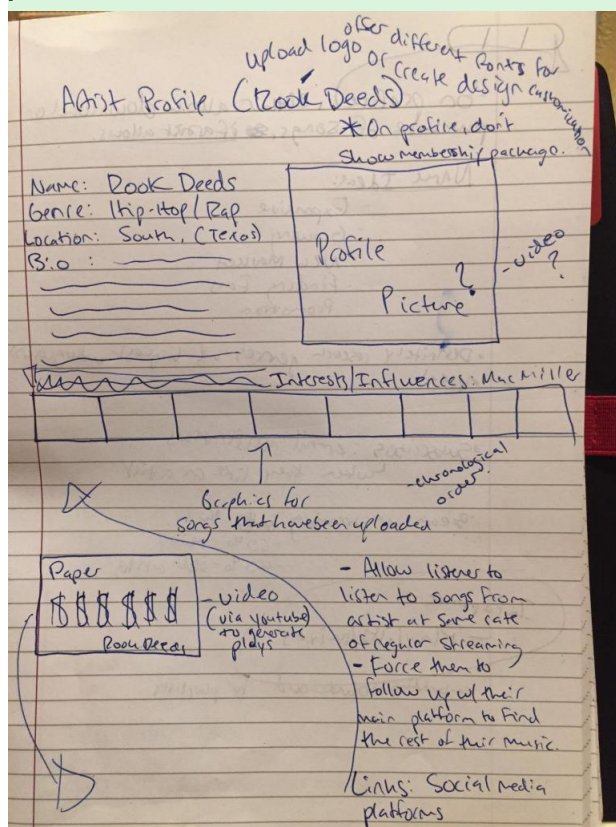 offer different fonts for
upload logo or create design customization
Artist Profile (Rook Deeds)
* On profile, don't
show membership package.
Name: Rook Deeds
Genre: Hip-Hop/Rap
Location: South, (Texas)
Bio:
Profile
Picture?
- video?
Interests/Influences: Mac Miller
Graphics for
songs that have been uploaded
- chronological
order
Paper
$ $ $ $ $ $
Rook Deeds
- video
(via youtube)
to generate
plays
- Allow listener to
listen to songs from
artist at same rate
of regular streaming
- Force them to
follow up w/ their
main platform to find
the rest of their music.
Links: Social media
platforms